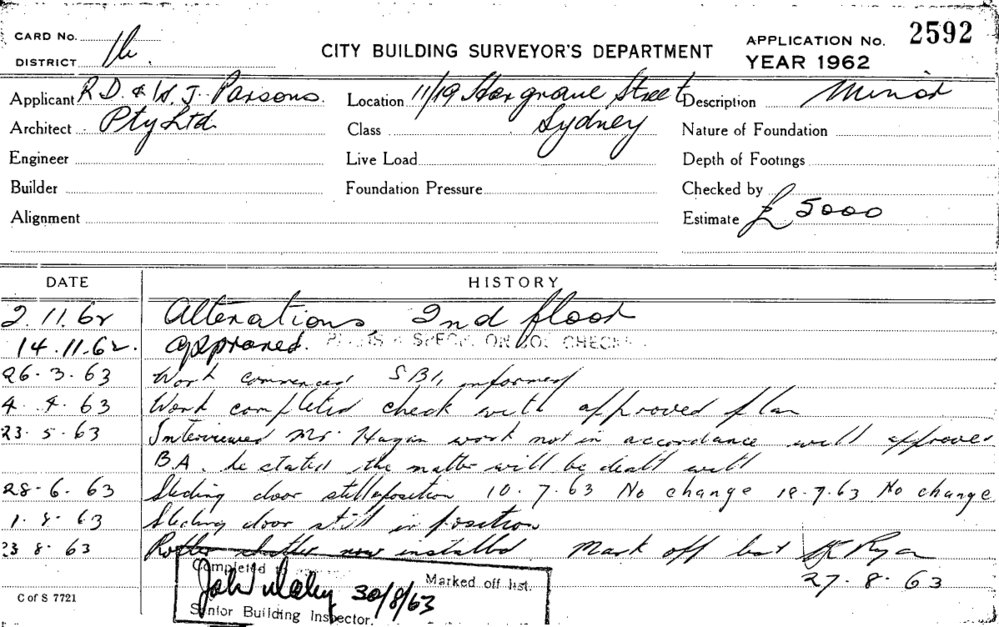 CARD No.
DISTRICT
CITY BUILDING SURVEYOR'S DEPARTMENT
APPLICATION No. 2592
YEAR 1962
Applicant R.D. & W. J. Parsons
Location 11/19 Hargrave Street
Description Minor
Architect Pty Ltd
Class Sydney
Nature of Foundation
Engineer
Live Load
Depth of Footings
Builder
Foundation Pressure
Checked by
Alignment
Estimate £ 5000
DATE HISTORY
2.11.62 Alterations, 2nd floor
14.11.62. approved. CHECK
26.3.63 Work commenced SBI, informed
4.4.63 Work completed check with approved plan
23.5.63 Interviewed Mr. Hagan work not in accordance with approved
B.A. he stated the matter will be dealt with
28-6.63 Sliding door still position 10.7.63 No change 18-7.63 No change
1.8.63 Sliding door still in position
23 8.63 Roller shutter now installed Mark off list Ryan
27.8.63
Completed
Marked off list.
30/8/63
Senior Building Inspector.
C of S 7721